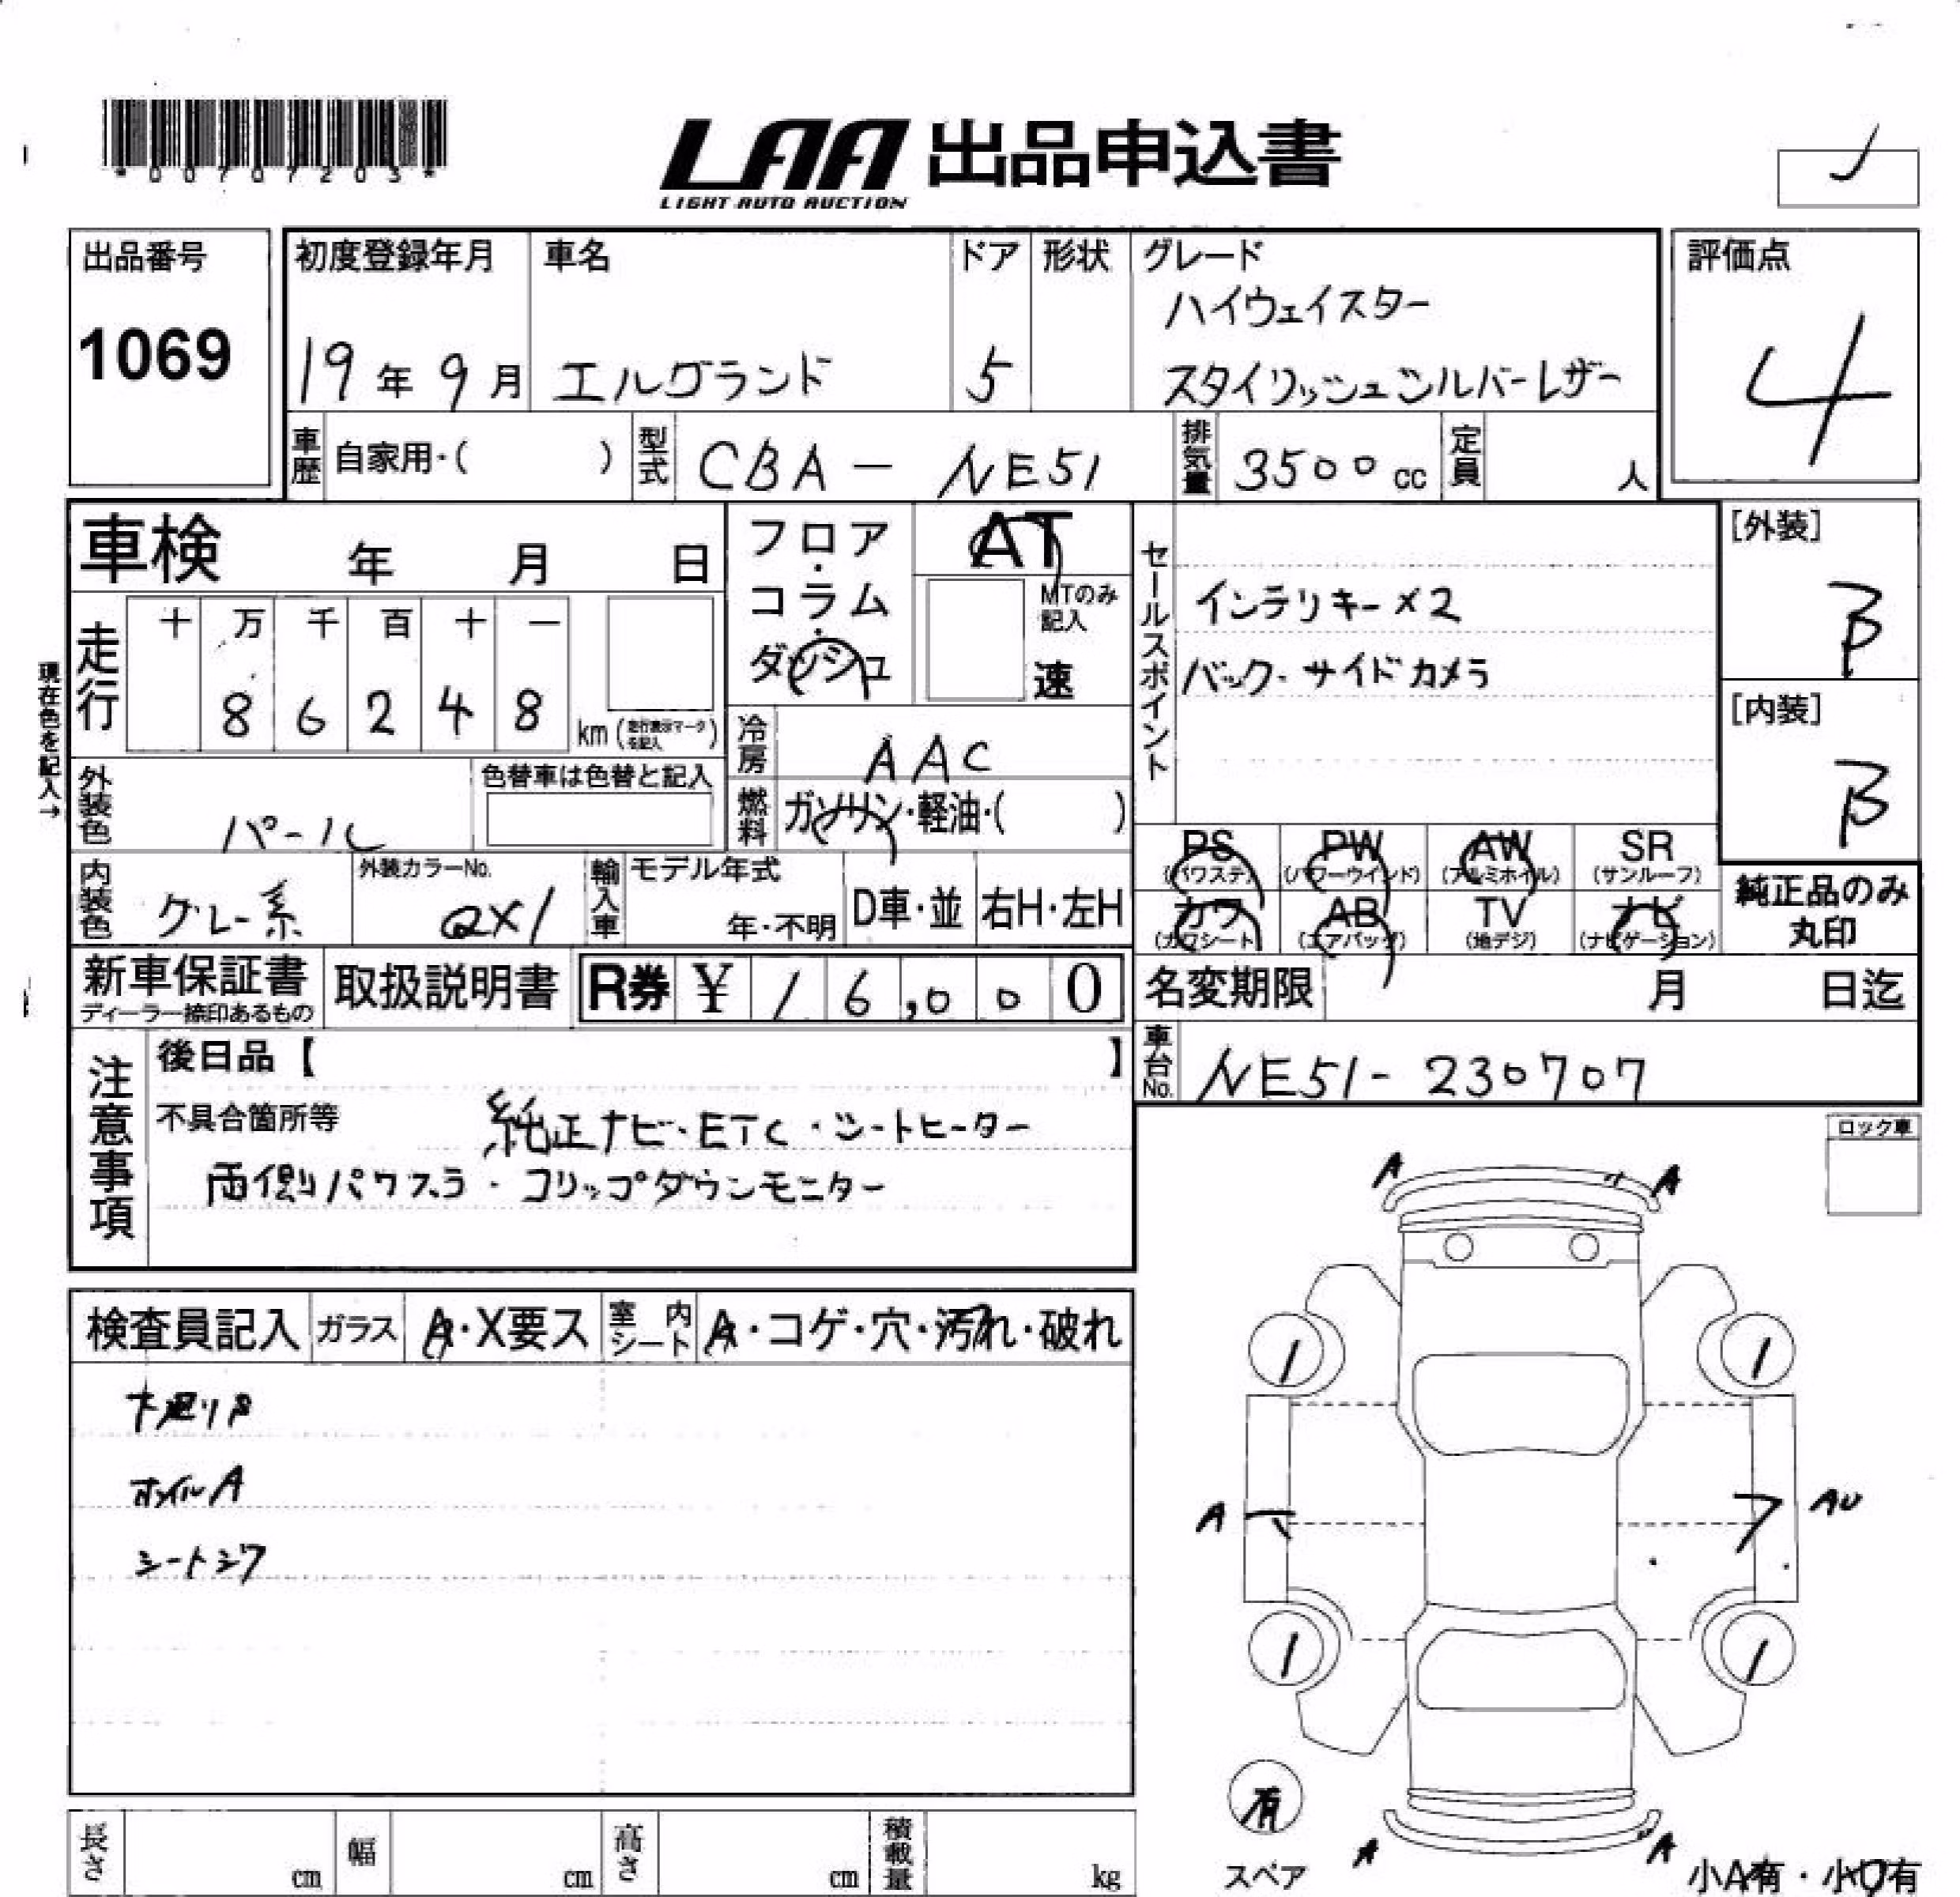 *00707203*
LAA 出品申込書
LIGHT AUTO AUCTION
出品番号
1069
初度登録年月
19年9月
車名
エルグランド
ドア
5
形状
グレード
ハイウェイスター
スタイリッシュシルバーレザー
評価点
4
車歴 自家用・( )
型式 CBA-NE51
排気量 3500cc
定員 人
車検 年 月 日
現在色を記入→
走行
十 万 千 百 十 一
8 6 2 4 8 km
フロア・コラム・ダッシュ
AT
MTのみ記入
速
冷房 AAC
燃料 ガソリン・軽油・( )
外装色 パール
色替車は色替と記入
内装色 グレー系
外装カラーNo.
QX1
輸入車 モデル年式
年・不明
D車・並
右H・左H
セールスポイント
インテリキー×2
バック・サイドカメラ
[外装]
B
[内装]
B
PS PW AW SR
(パワステ) (パワーウインド) (アルミホイル) (サンルーフ)
カワ AB TV ナビ
(カワシート) (エアバッグ) (地デジ) (ナビゲーション)
純正品のみ
丸印
新車保証書
ディーラー捺印あるもの
取扱説明書
R券 ¥16,000
名変期限 月 日迄
車台No. NE51-230707
注意事項
後日品【 】
不具合箇所等 純正ナビ・ETC・シートヒーター
両側パワスラ・フリップダウンモニター
ロック車
検査員記入 ガラス A・X要ス 室内シート A・コゲ・穴・汚れ・破れ
下廻りS
ホイルA
シートシワ
A A
A AU
A A
有
スペア
小A有・小U有
長さ cm 幅 cm 高さ cm 積載量 kg